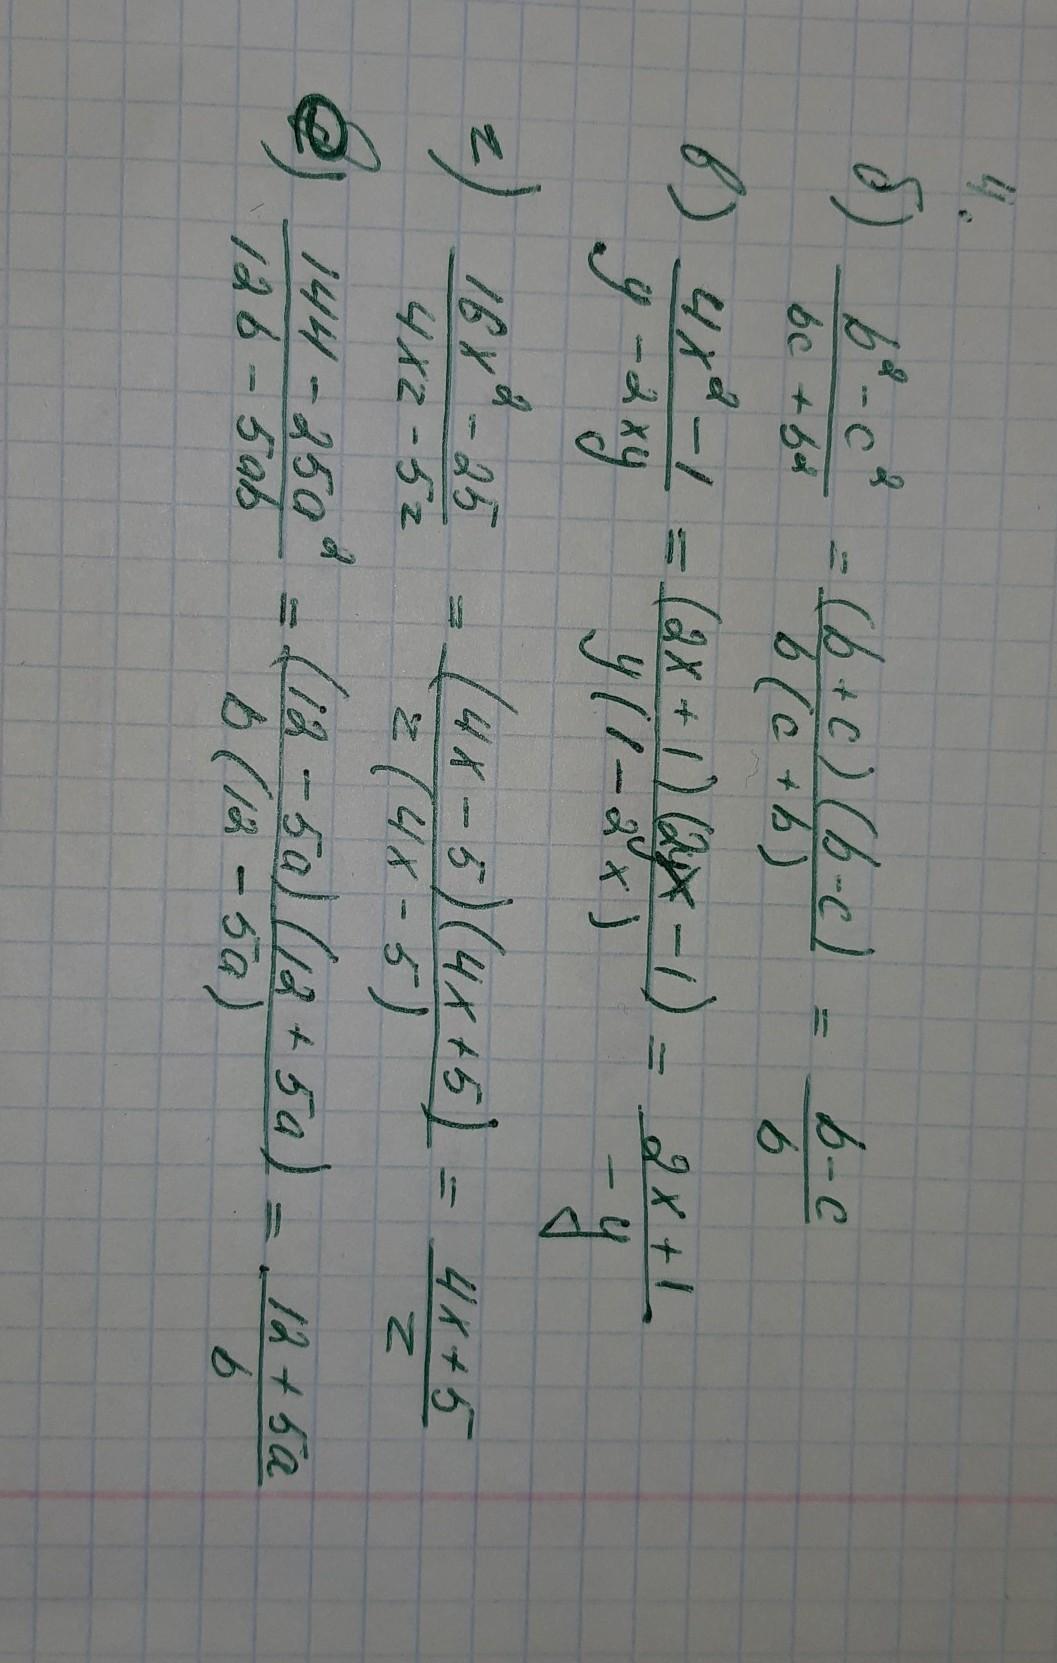 4.
б) b² - c² / bc + b² = (b + c)(b - c) / b(c + b) = b - c / b
в) 4x² - 1 / y - 2xy = (2x + 1)(2x - 1) / y(1 - 2x) = 2x + 1 / - y
г) 16x² - 25 / 4xz - 5z = (4x - 5)(4x + 5) / z(4x - 5) = 4x + 5 / z
) 144 - 25a² / 12b - 5ab = (12 - 5a)(12 + 5a) / b(12 - 5a) = 12 + 5a / b